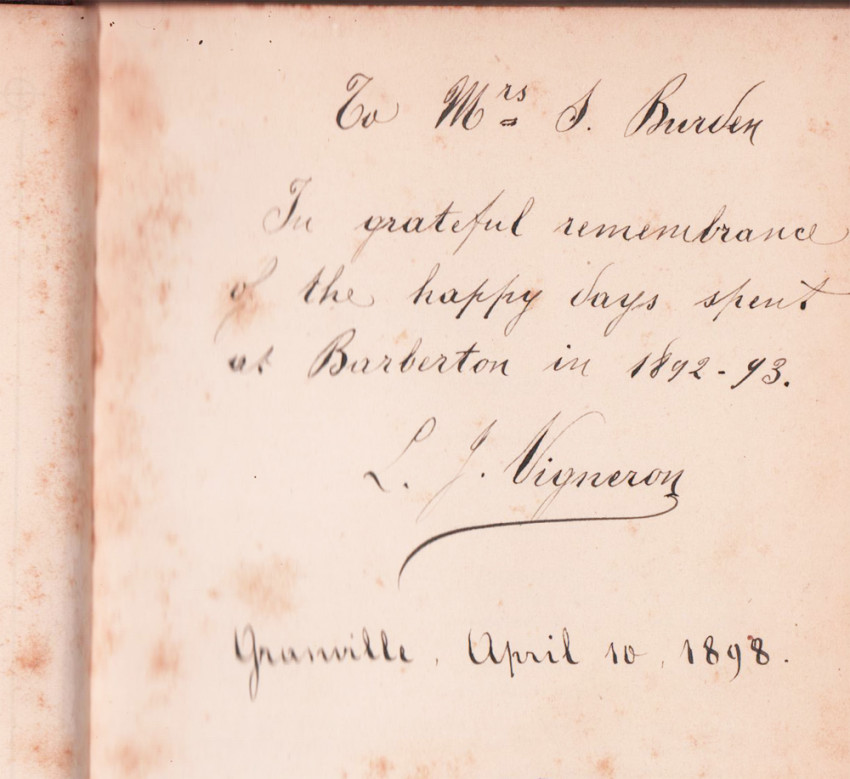 To Mrs S. Burden
In grateful remembrance
of the happy days spent
at Barberton in 1892-93.
L. J. Vigneron
Granville, April 10, 1898.